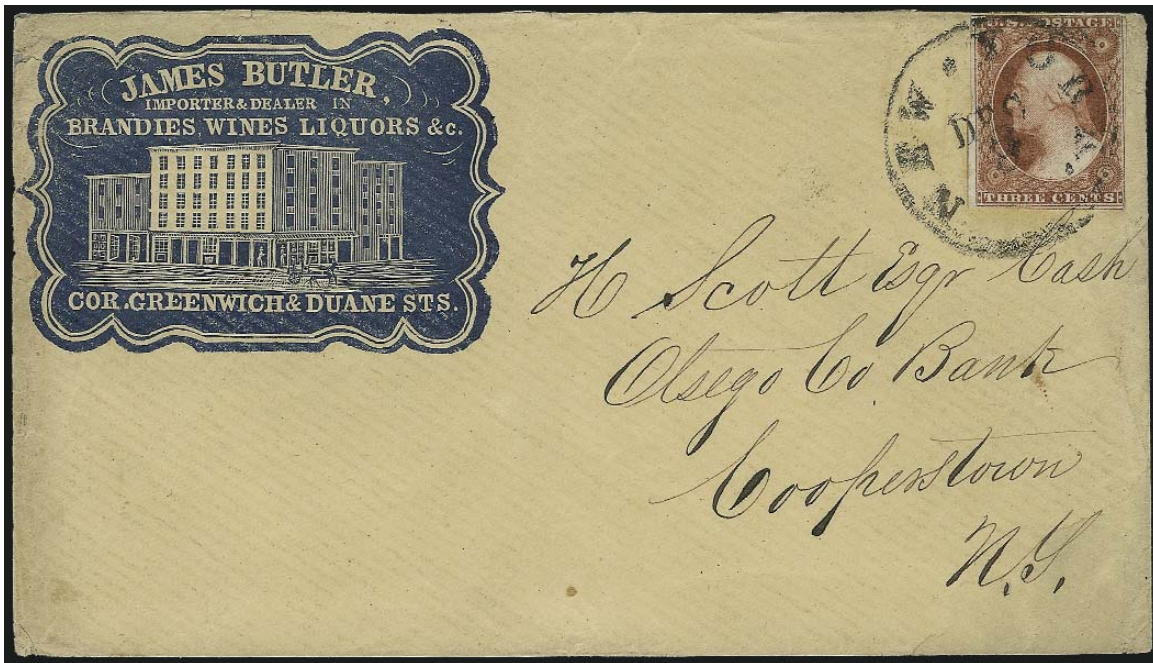 JAMES BUTLER,
IMPORTER & DEALER IN
BRANDIES WINES LIQUORS &c.
COR. GREENWICH & DUANE STS.
NEW • YORK
U.S. POSTAGE
THREE CENTS
H Scott Esqr Cash
Otsego Co Bank
Cooperstown
N.Y.